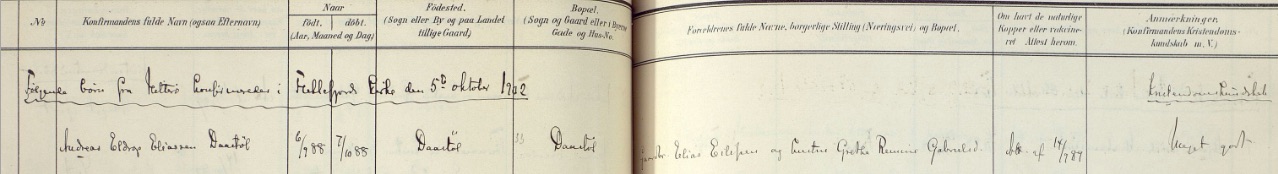 No
Konfirmandens fulde Navn (ogsaa Efternavn)
Naar
født. døbt.
(Aar, Maaned og Dag)
Fødested.
(Sogn eller By og paa Landet tillige Gaard)
Bopæl.
(Sogn og Gaard eller i Byerne Gade og Hus-No.
Forældrenes fulde Navne, borgerlige Stilling (Næringsvei) og Bopæl.
Om havt de naturlige Kopper eller vakcineret Attest herom.
Anmærkninger.
(Konfirmandens Kristendomskundskab m. V.)
Følgende børn fra Hetterø konfirmeredes i Fellefjords Kirke den 5te oktober 1902
Kristendomskundskab
Andreas Eldrop Eliassen Daastøl 6/9 88 7/10 88 Daastøl Daastøl Elias Eilefsen og hustru Grethe Gabrielsd. af 14/9 89 Meget godt